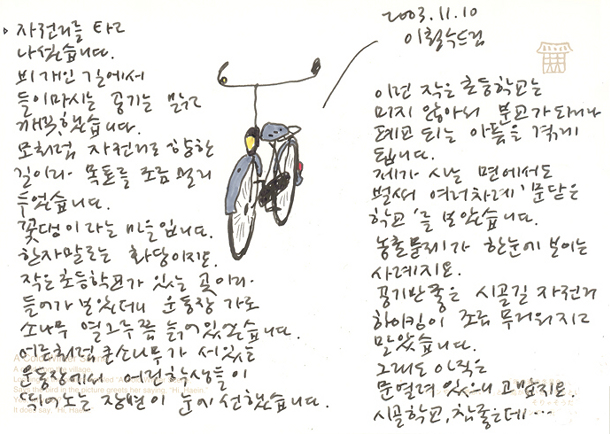 자전거를 타고
나섰습니다.
비개인 길에서
들이마시는 공기는 맑고
깨끗했습니다.
모처럼 자전거로 향한
길이라 목표를 조금 멀리
두었습니다.
꽃댕이라는 마을입니다.
한자말로는 화당이지요.
작은초등학교가 있는 곳이라.
들어가 보았더니 운동장 가로
소나무 열그루쯤 늙어있었습니다.
어른처럼 큰소나무가 서있는
운동장에서 어린학생들이
뛰어노는 장면이 눈에 선했습니다.
2003.11.10
이철수드림
이런 작은 초등학교는
머지 않아서 분교가 되거나
폐교 되는 아픔을 겪게
됩니다.
제가 사는 면에서도
벌써 여러차례 '문닫은
학교'를 보았습니다.
농촌문제가 한눈에 보이는
사례지요.
공기반좋은 시골길 자전거
하이킹이 조금 무거워지고
말았습니다.
그래도 아직은
문열려 있으니 고맙지요.
시골학교, 참좋은데…